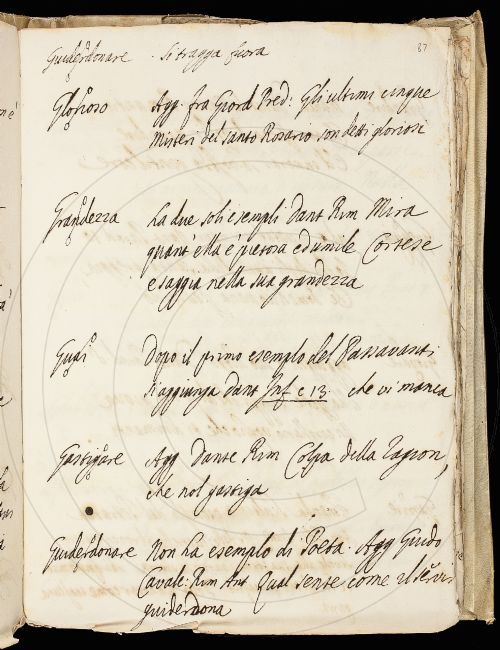 87
Guiderdonare . Si tragga fuora
Glorioso Agg. fra Giord. Pred: Gli ultimi cinque
Misteri del santo Rosario son detti gloriosi
Grandezza Ha due soli esempli Dant Rim Mira
quant'ella è pietosa ed umile Cortese
e saggia nella sua grandezza
Guai Dopo il primo esemplo del Passavanti
s'aggiunga Dant Inf c 13. che vi manca
Gastigare Agg Dante Rim Colpa della ragion,
che nol gastiga
Guiderdonare Non ha esemplo di Poeta. Agg Guido
Cavalc: Rim Ant Qual sente come il servir
guiderdona